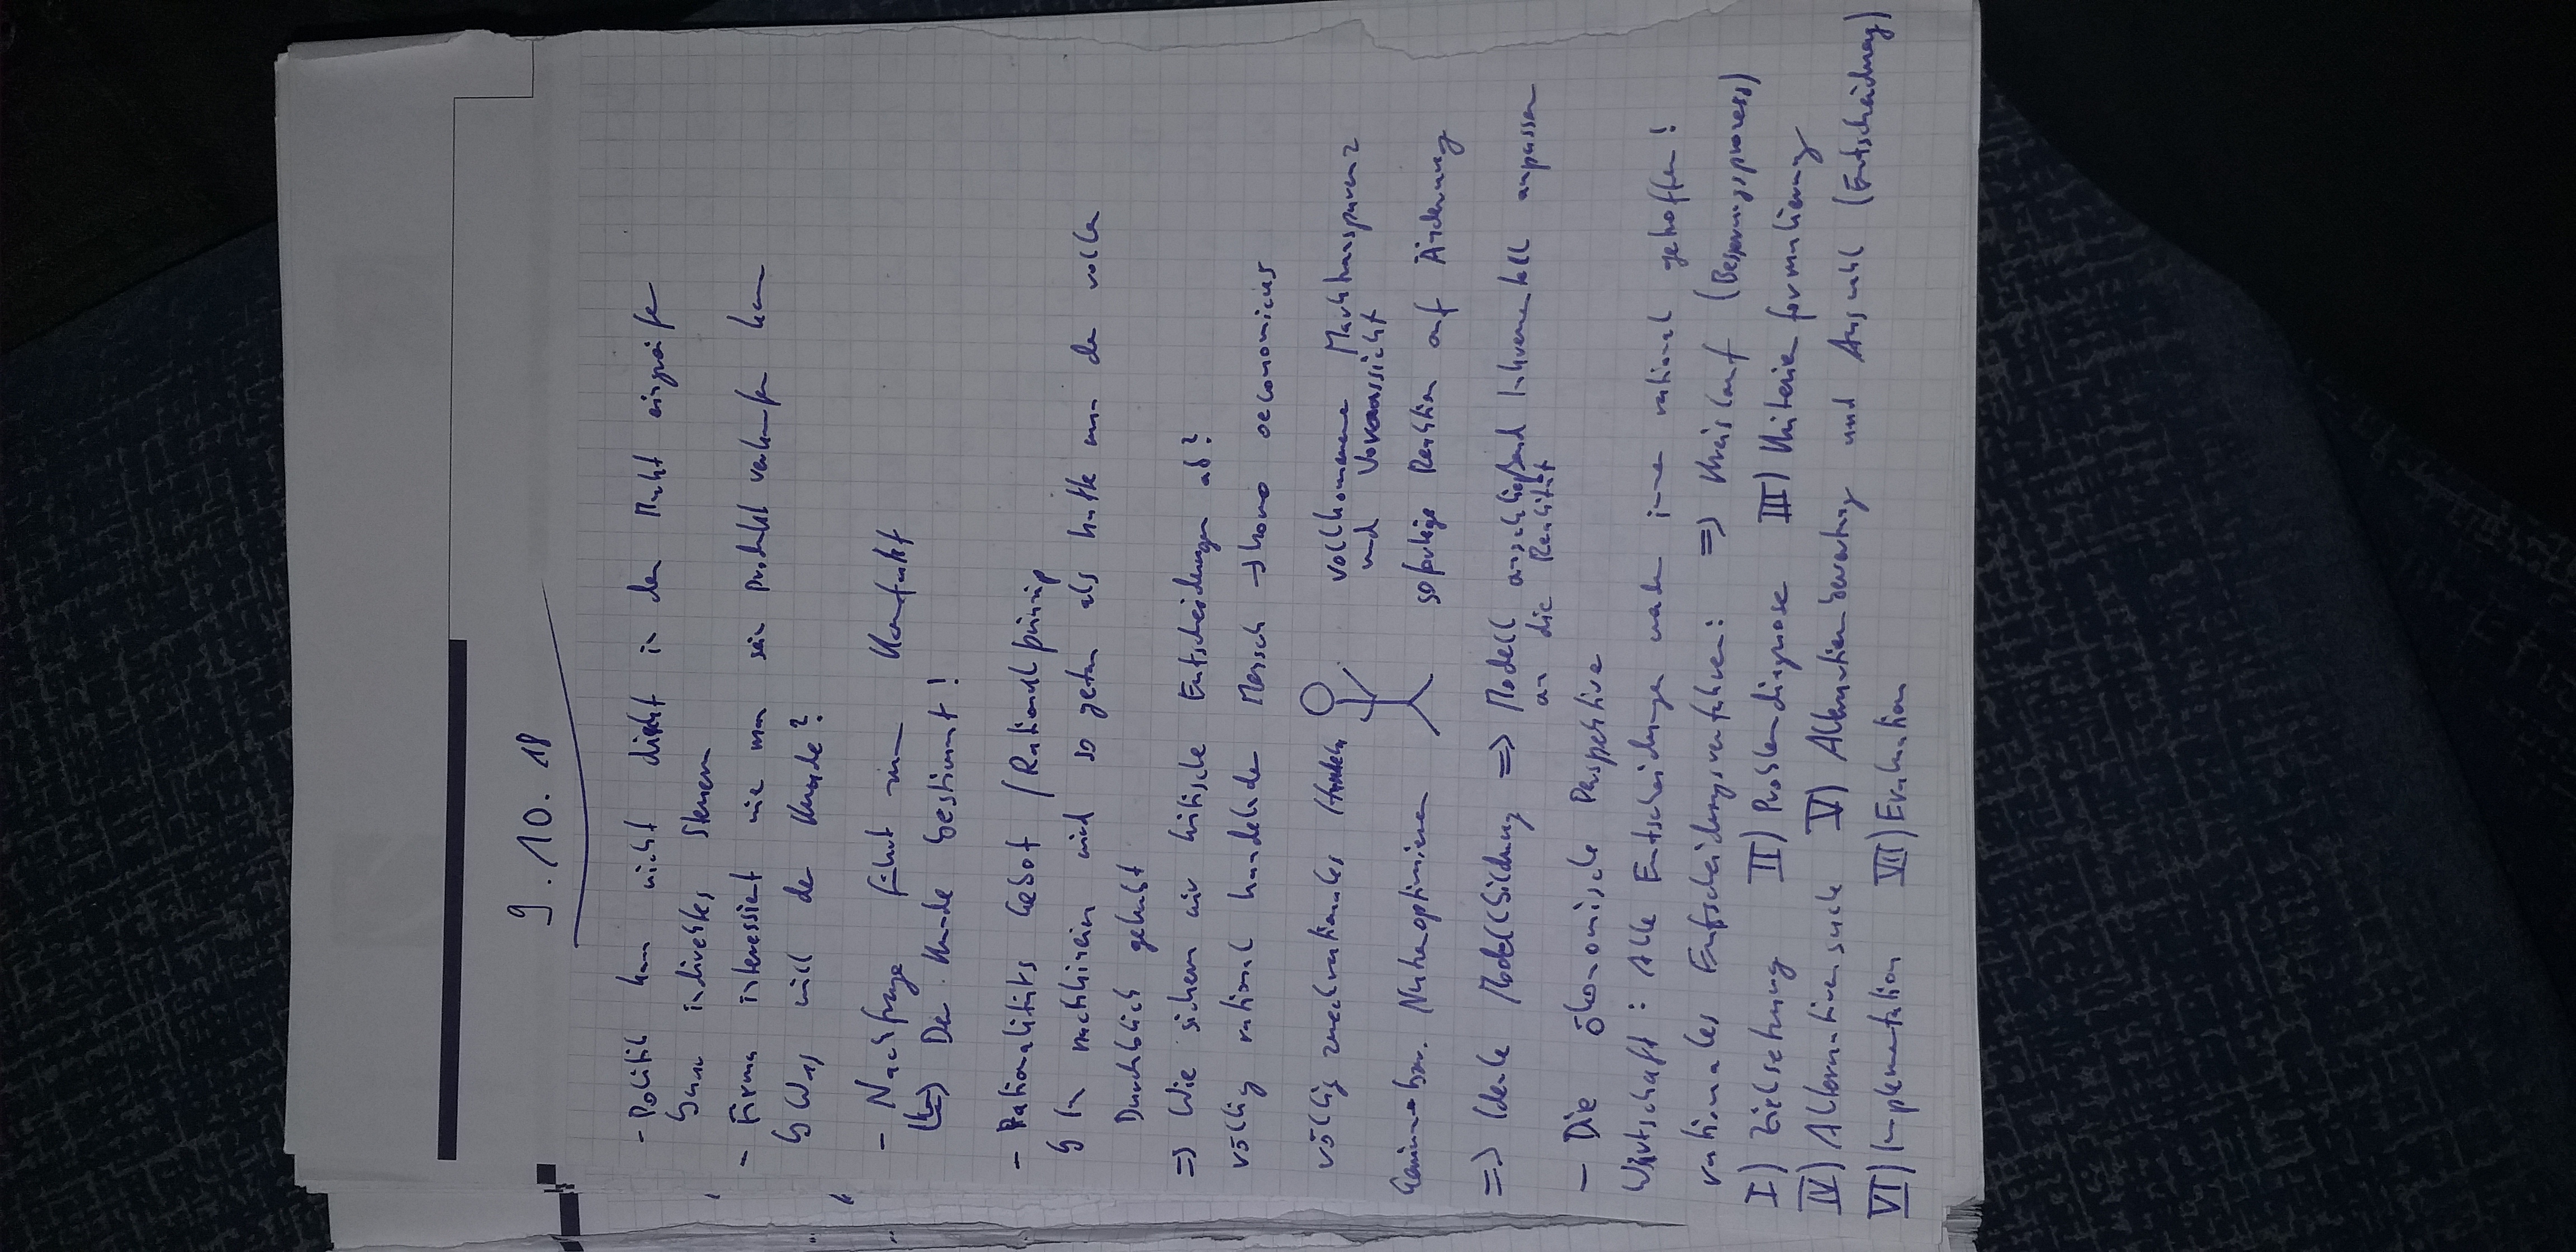 9.10.18
- Politik kann nicht direkt in den Markt eingreifen
↳ nur indirektes Steuern
- Firma interessiert wie man sein Produkt verkaufen kann
↳ Was will der Kunde?
- Nachfrage führt zum
Der Kunde bestimmt!
- Rationalitäts Gebot / Rationalprinzip
↳ Im nachhinein wird so getan als hätte man den vollen
Durchblick gehabt
=> Wie sichern wir kritische Entscheidungen ab?
völlig rational handelnder Mensch -> homo oeconomicus
völlig zweckrationales Handeln
vollkommene Markttransparenz
und Voraussicht
Gewinn bzw. Nutzenoptimieren
sofortige Reaktion auf Änderung
=> Ideale Modellbildung => Modell anschließend Inkrementell anpassen
an die Realität
- Die ökonomische Perspektive
Wirtschaft: Alle Entscheidungen werden immer rational getroffen!
rationales Entscheidungsverfahren: => Kreislauf
I) Zielsetzung II) Problemdiagnose III) Kriterien formulierung
IV) Alternativensuche V) Alternativenbewertung und Auswahl (Entscheidung)
VI) Implementation VII) Evaluation